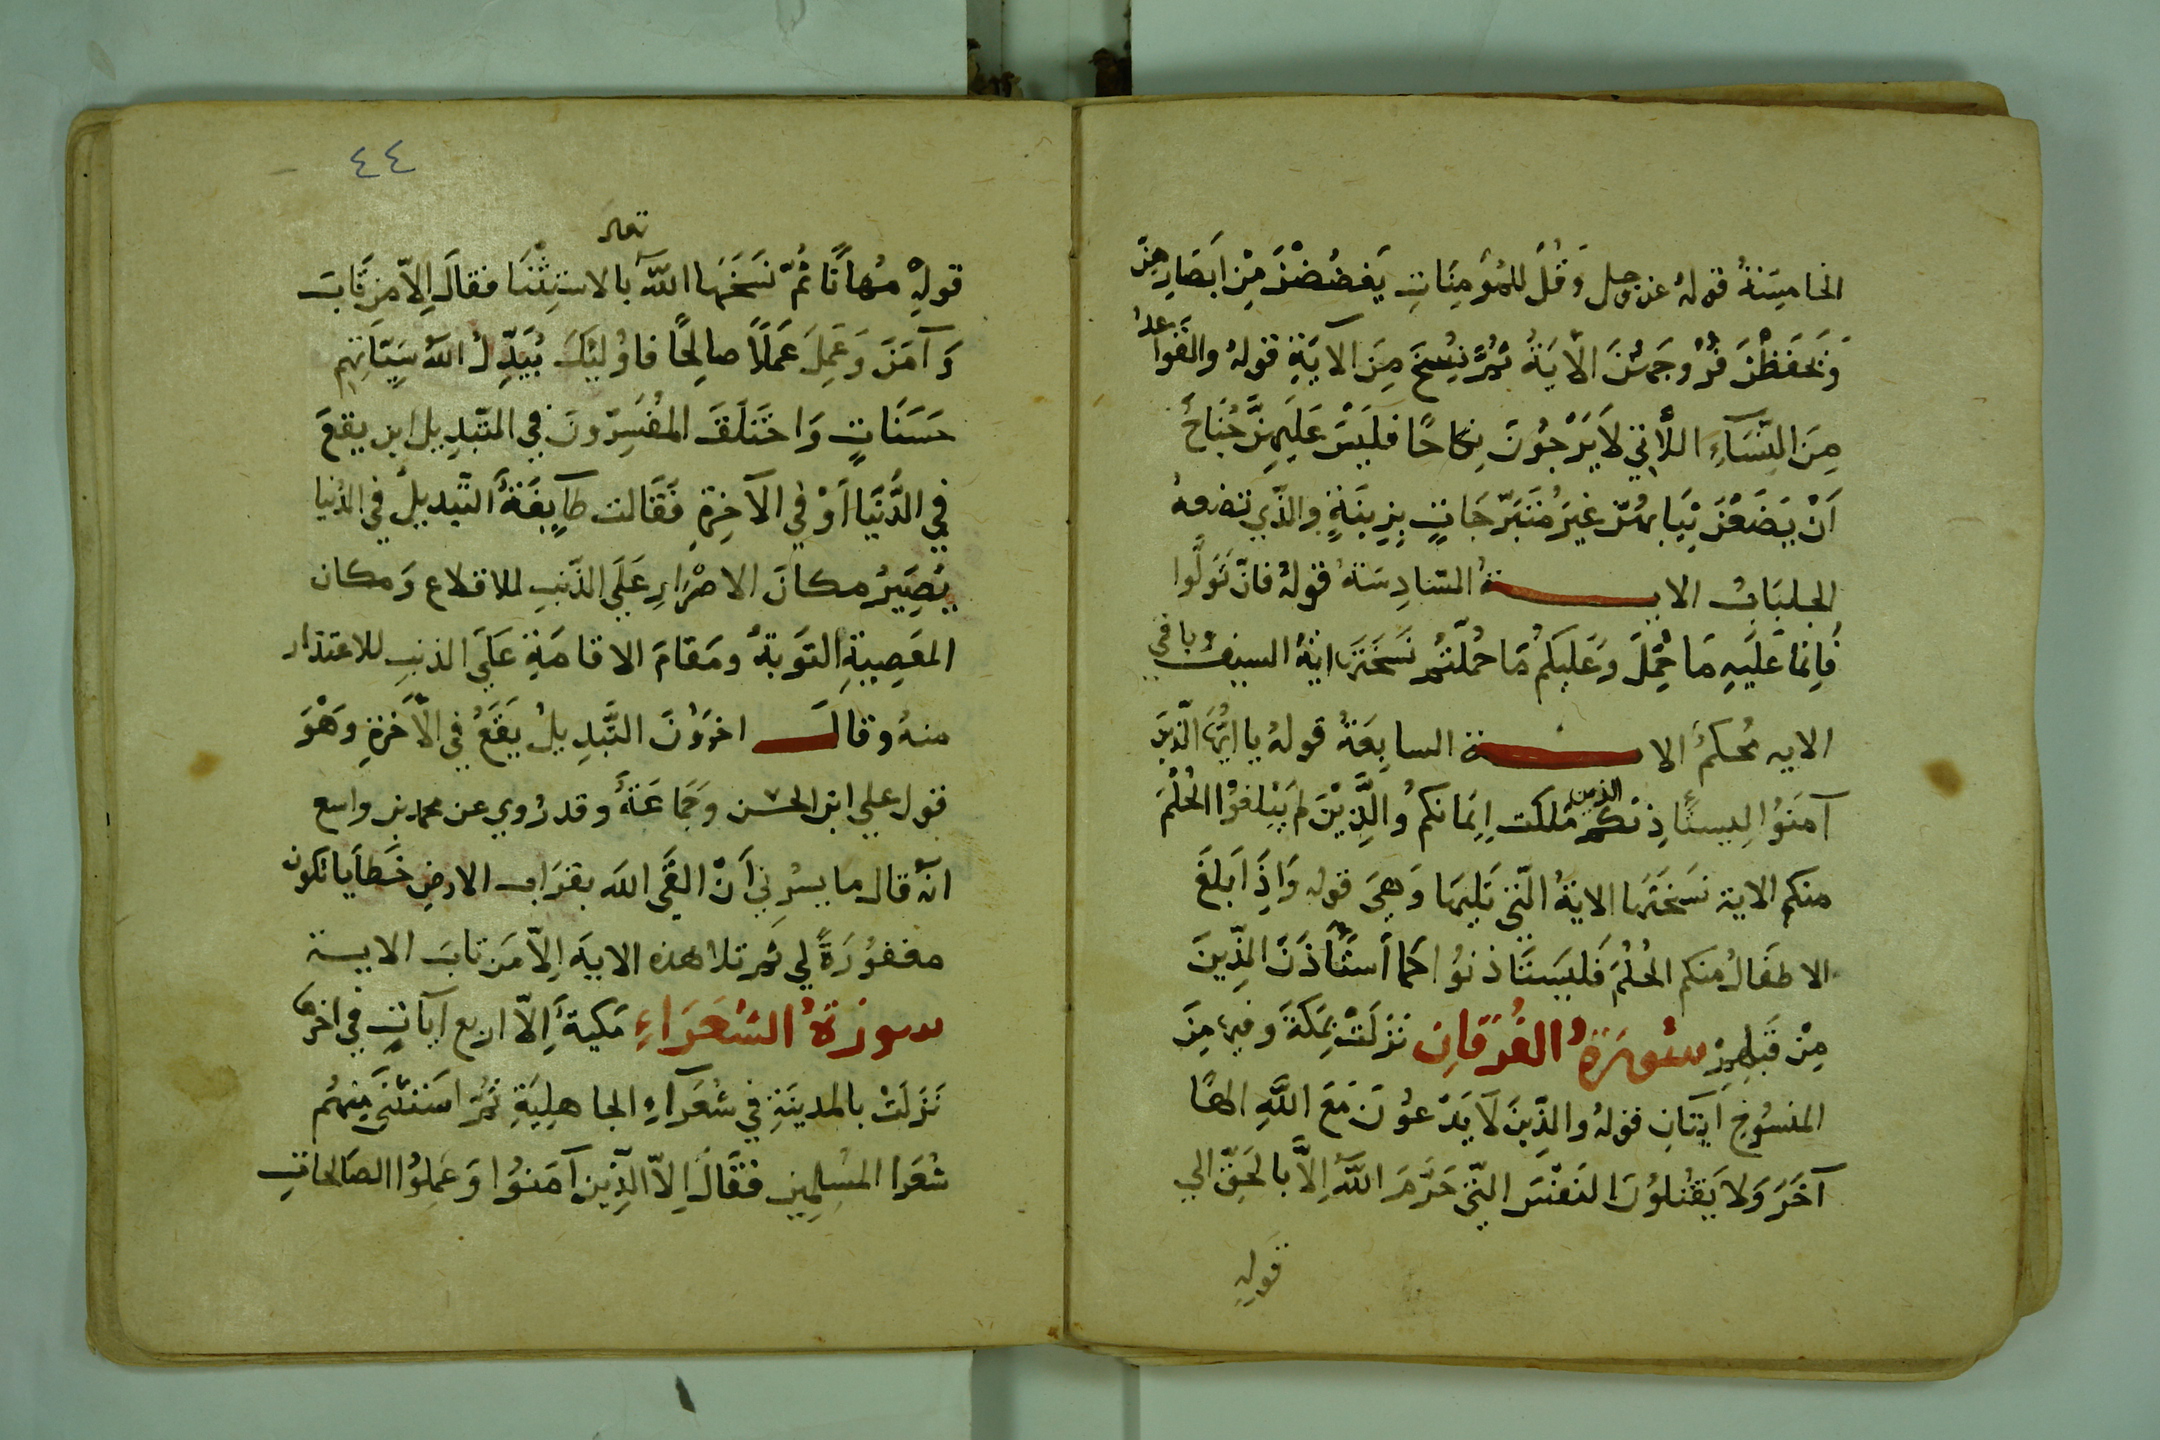 الخامِسَةُ قولهُ عز وجل وَقُلْ للمُؤمِنَاتِ يَغضُضْنَ مِنْ ابَصَارِهِنَّ
وَيَحَفَظْنَ فُرُوجَهُنَّ الآيَةُ ثُمَّ نُسِخَ مِنَ الآيَةِ قولهُ والقَواعدُ
مِنَ النِّسَآءِ اللَّاتِي لاَيَرْجُونَ نِكاحًا فَلَيسَ عَلَيهِنَّ جُنَاحٌ
اَنْ يَضَعْنَ ثِيَابَهُنّ غيرَ مُتَبَرّجَاتٍ بِزِينَةٍ والذّي تضعهُ
الجلبَابُ الايــة السّادِسَة قولهُ فانّ تَوَلَّوا
فَاِنمَا عَلَيهِ مَا حُمّلَ وَعَلَيكم مَا حُمّلتُم نَسَخَتهَا ايَةُ السيفِ وباقي
الايه مُحكمُ الايــة السابِعَةُ قولهُ يا ايُّهَا الَّذِينَ
آمَنَوُا لِيستَاذِنكم الذين مَلكَت اِيَمانكم وُالَّذِيْنَ لم يَبْلغوْا الُحلُمَ
منكم الاية نسَخَتَهَا الايَةُ الَّتِي تَلِيهَا وَهِيَ قوله وَاِذَا بَلغَ
الاطفَالُ منكم الحُلُمَ فَليسَتَاذنوُا كَمَا اَستَأذَنَ الذِّينَ
مِنْ قَبلِهِمْ سُورَةُ الفُرقَانِ نَزلَتْ بمَكَةَ وفيها مِنَ
المنسُوخِ اَيتَانِ قولهُ والذِّينَ لاَ يَدْعوُنَ مَعَ اللَّهِ الهًا
آخَرَ وَلاَ يَقتُلوُنَ النَفسَ التّي حَرَّمَ اللَّهُ اِلاَّ بالحَقّ الي
قولهِ
٤٤
قولهِ مُهانًا ثُمّ نسَخَهَا اللَّهُ تعالى بالاستِثْنَا فقالَ اِلاّ مَن تَابَ
وَآمَنَ وَعَمِلَ عَمَلاً صالِحًا فاوُليَكَ يُبَدّلُ اللَّهُ سَيَّاتَهِم
حَسَنَاتٍ وَاختَلَفَ المُفسِرّونَ في التّبدِيل اين يقعَ
فِي الدُّنيَا اَوْ في الآخِرَةِ فَقَالت طآيِفَةُ التّبديلُ في الدُنيا
يُصَيّرُ مكانَ الاصْرارِ عَلَي الذّنبِ للاقلاع وَمكان
المعَصِيةِ التَوبةُ ومَقامَ الاقامَةِ عَلَي الذنبِ للاعتذار
منهُ وقالَ اخرَوُنَ التَّبدِيلُ يَقَعُ في الآخَرةِ وَهْوَ
قول علي ابن الحسن وَجَمَاعَةُ وقد رُوي عن محمد بن واسع
انّهُ قال ما يسُرني اَنْ القَي الله بقرَابِ الارضِ خَطاَيا تكون
مغفوُرَةً لي ثم تلا هذه الايه اِلاّ مَن تابَ الايــة
سورَةُ الشعَرَاءِ مَكيةَ اِلاّ اربع آيَاتٍ في اخرِهَا
نَزَلَتْ بالمدينَةِ في شعَرآءِ الجاهلِيَةِ ثُمّ استثنَى مِنهُم
شعَرا المسُلِمِين فقَالَ اِلاّ الذِّينَ آمَنوُا وَعَمِلُوا الصَالحاتِ